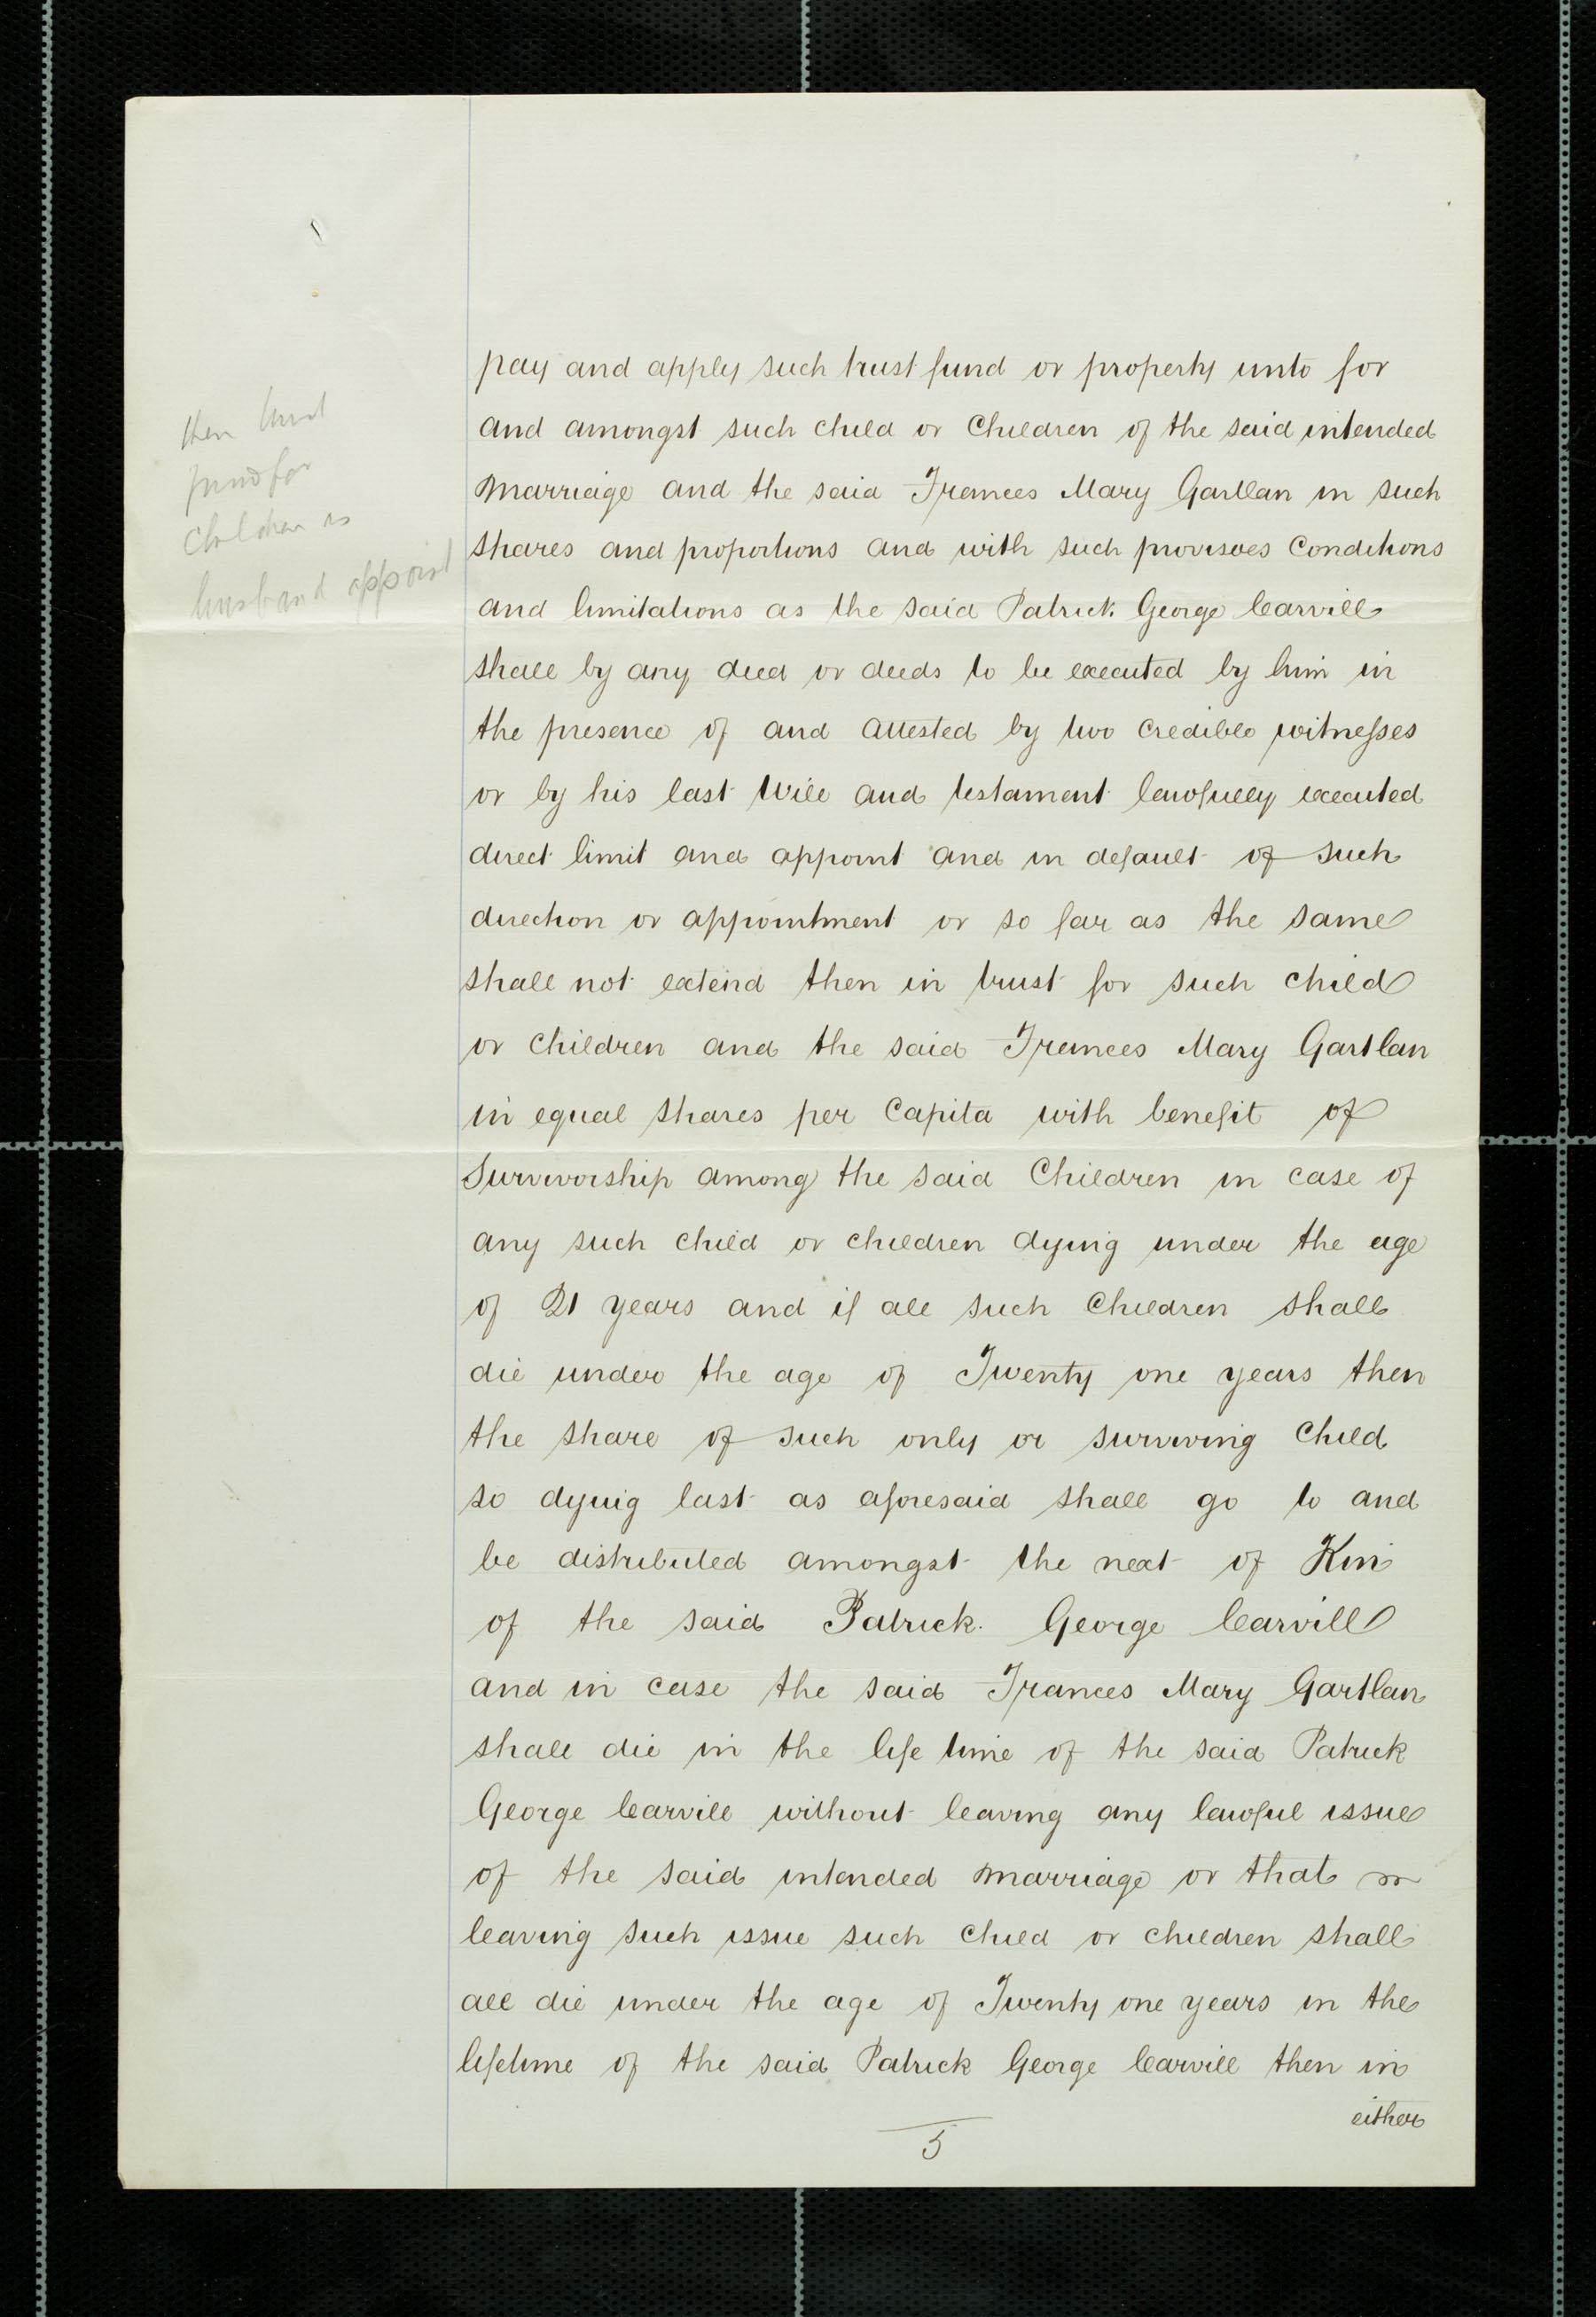 then trust
fund for
children as
husband appoint
pay and apply such trust fund or property unto for
and amongst such child or Children of the said intended
marriage and the said Frances Mary Gartlan in such
shares and proportions and with such provisoes Conditions
and limitations as the said Patrick George Carvill
shall by any deed or deeds to be executed by him in
the presence of and attested by two credible witnesses
or by his last Will and testament lawfully executed
direct limit and appoint and in default of such
direction or appointment or so far as the same
shall not extend then in trust for such child
or children and the said Frances Mary Gartlan
in equal shares per Capita with benefit of
Survivorship among the said Children in case of
any such child or children dying under the age
of 21 years and if all such Children shall
die under the age of Twenty one years then
the share of such only or surviving Child
so dying last as aforesaid shall go to and
be distributed amongst the next of Kin
of the said Patrick George Carvill
and in case the said Frances Mary Gartlan
shall die in the life time of the said Patrick
George Carvill without leaving any lawful issue
of the said intended marriage or that
leaving such issue such child or children shall
all die under the age of Twenty one years in the
lifetime of the said Patrick George Carvill then in
either
5